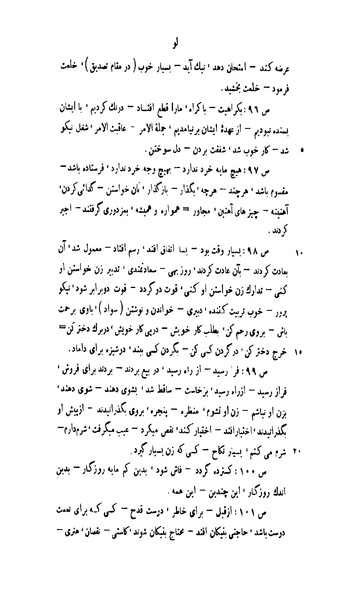 لو
عرضه کند – امتحان دهد ؛ نیك آید – بسیار خوب ( در مقام تصدیق ) ؛ خلعت
فرمود – خلعت بخشید .
ص ۹۶ : بکراهیت – باکراه ؛ مارا قطع افتاد – درنك کردیم ؛ با ایشان
بسنده نبودیم – از عهدهٔ ایشان برنیامدیم ؛ جملة الامر – عاقبت الامر ؛ شغل نیکو
شد – کار خوب شد ؛ شفقت بردن – دل سوختن . ۵
ص ۹۷ : هیچ مایه خرد ندارد – بهیچ وجه خرد ندارد ؛ فرستاده باشد –
مقسوم باشد ؛ هرچند – هرچه ؛ بگذار – بازگذار ؛ نان خواستن – گدائی کردن ؛
آهنینه – چیزهای آهنین ؛ مجاور = همواره و همیشه ؛ بمزدوری گرفتند – اجیر
کردند .
ص ۹۸ : بسیار وقت بود – بسا اتفاق افتد ؛ رسم افتاد – معمول شد ؛ آن ۱۰
بعادت کردند – بآن عادت کردند ؛ روز بهی – سعادتمندی ؛ تدبیر زن خواستن او
کنی – تدارك زن خواستن او کنی ؛ قوت دو گردد – قوت دوبرابر شود ؛ نیکو
پرور – خوب تربیت کننده ؛ دبیری – خواندن و نوشتن ( سواد ) ؛ باوی برحمت
باش – بروی رحم کن ؛ بطلب کار خویش – درپی کار خویش ؛ دربرك دختر کن =
خرج دختر کن ؛ در گردن کسی کن – بگردن کسی بند ؛ دوشیزه برای داماد . ۱۵
ص ۹۹ : فرا رسید – از راه رسید ؛ در بیع بردند – بردند برای فروش ؛
فراز رسید – ازراه رسید ؛ برخاست – ساقط شد ؛ بشوی دهند – شوی دهند ؛
بزن او نباشم – زن او نشوم ؛ منظره – پنجره ؛ بروی بگذرانیدند – ازپیش او
بگذرانیدند ؛ اختیار افتد – اختیار کند ؛ نقص میکرد – عیب میگرفت ؛ شرم دارم –
شرم می کنم ؛ بسیار نکاح – کسی که زن بسیار گیرد . ۲۰
ص ۱۰۰ : گسترده گردد – فاش شود ؛ بدین کم مایه روزگار – بدین
اندك روزگار ؛ این چندین – این همه .
ص ۱۰۱ : از قبل – برای خاطر ؛ دوست قدح – کسی که برای نعمت
دوست باشد ؛ حاجتی بنیکان افتد – محتاج بنیکان شوند ؛ کاستی – نقصان ؛ هنری –